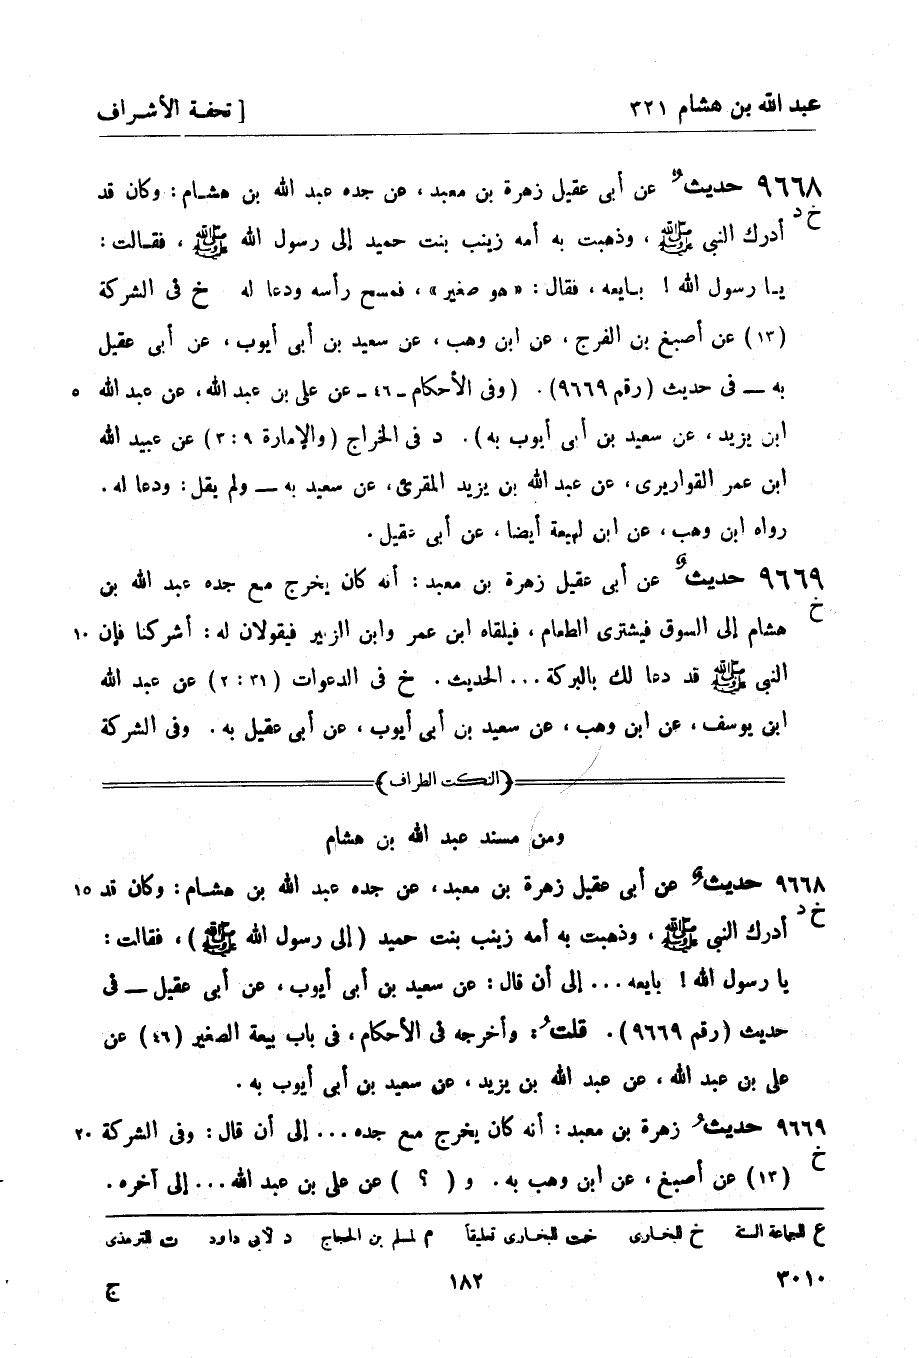 عبد الله بن هشام ٣٢١ [ تحفة الأشراف
٩٦٦٨ حديث عن أبى عقيل زهرة بن معبد، عن جده عبد الله بن هشام: وكان قد
خ د أدرك النبى ﷺ، وذهبت به أمه زينب بنت حميد إلى رسول الله ﷺ، فقالت:
يا رسول الله! بايعه، فقال: «هو صغير»، فمسح رأسه ودعا له خ فى الشركة
(١٣) عن أصبغ بن الفرج، عن ابن وهب، عن سعيد بن أبى أيوب، عن أبى عقيل
به ــ فى حديث (رقم ٩٦٦٩). (وفى الأحكام ـ ٤٦ ـ عن على بن عبد الله، عن عبد الله ٥
ابن يزيد، عن سعيد بن أبى أيوب به). د فى الخراج (والإمارة ٩: ٣) عن عبيد الله
ابن عمر القواريرى، عن عبد الله بن يزيد المقرئ، عن سعيد به ــ ولم يقل: ودعا له.
رواه ابن وهب، عن ابن لهيعة أيضا، عن أبى عقيل.
٩٦٦٩ حديث عن أبى عقيل زهرة بن معبد: أنه كان يخرج مع جده عبد الله بن
خ هشام إلى السوق فيشترى الطعام، فيلقاه ابن عمر وابن الزبير فيقولان له: أشركنا فإن ١٠
النبى ﷺ قد دعا لك بالبركة... الحديث. خ فى الدعوات (٣١: ٢) عن عبد الله
ابن يوسف، عن ابن وهب، عن سعيد بن أبى أيوب، عن أبى عقيل به. وفى الشركة
(النكت الظراف)
ومن مسند عبد الله بن هشام
٩٦٦٨ حديث عن أبى عقيل زهرة بن معبد، عن جده عبد الله بن هشام: وكان قد ١٥
خ د أدرك النبى ﷺ، وذهبت به أمه زينب بنت حميد (إلى رسول الله ﷺ)، فقالت:
يا رسول الله! بايعه... إلى أن قال: عن سعيد بن أبى أيوب، عن أبى عقيل ــ فى
حديث (رقم ٩٦٦٩). قلتُ: وأخرجه فى الأحكام، فى باب بيعة الصغير (٤٦) عن
على بن عبد الله، عن عبد الله بن يزيد، عن سعيد بن أبى أيوب به.
٩٦٦٩ حديث زهرة بن معبد: أنه كان يخرج مع جده... إلى أن قال: وفى الشركة ٢٠
خ (١٣) عن أصبغ، عن ابن وهب به. و ( ؟ ) عن على بن عبد الله... إلى آخره.
ع للجماعة الستة خ للبخارى خت للبخارى تعليقاً م لمسلم بن الحجاج د لأبى داود ت للترمذى
٣٠١٠ ١٨٢ ج